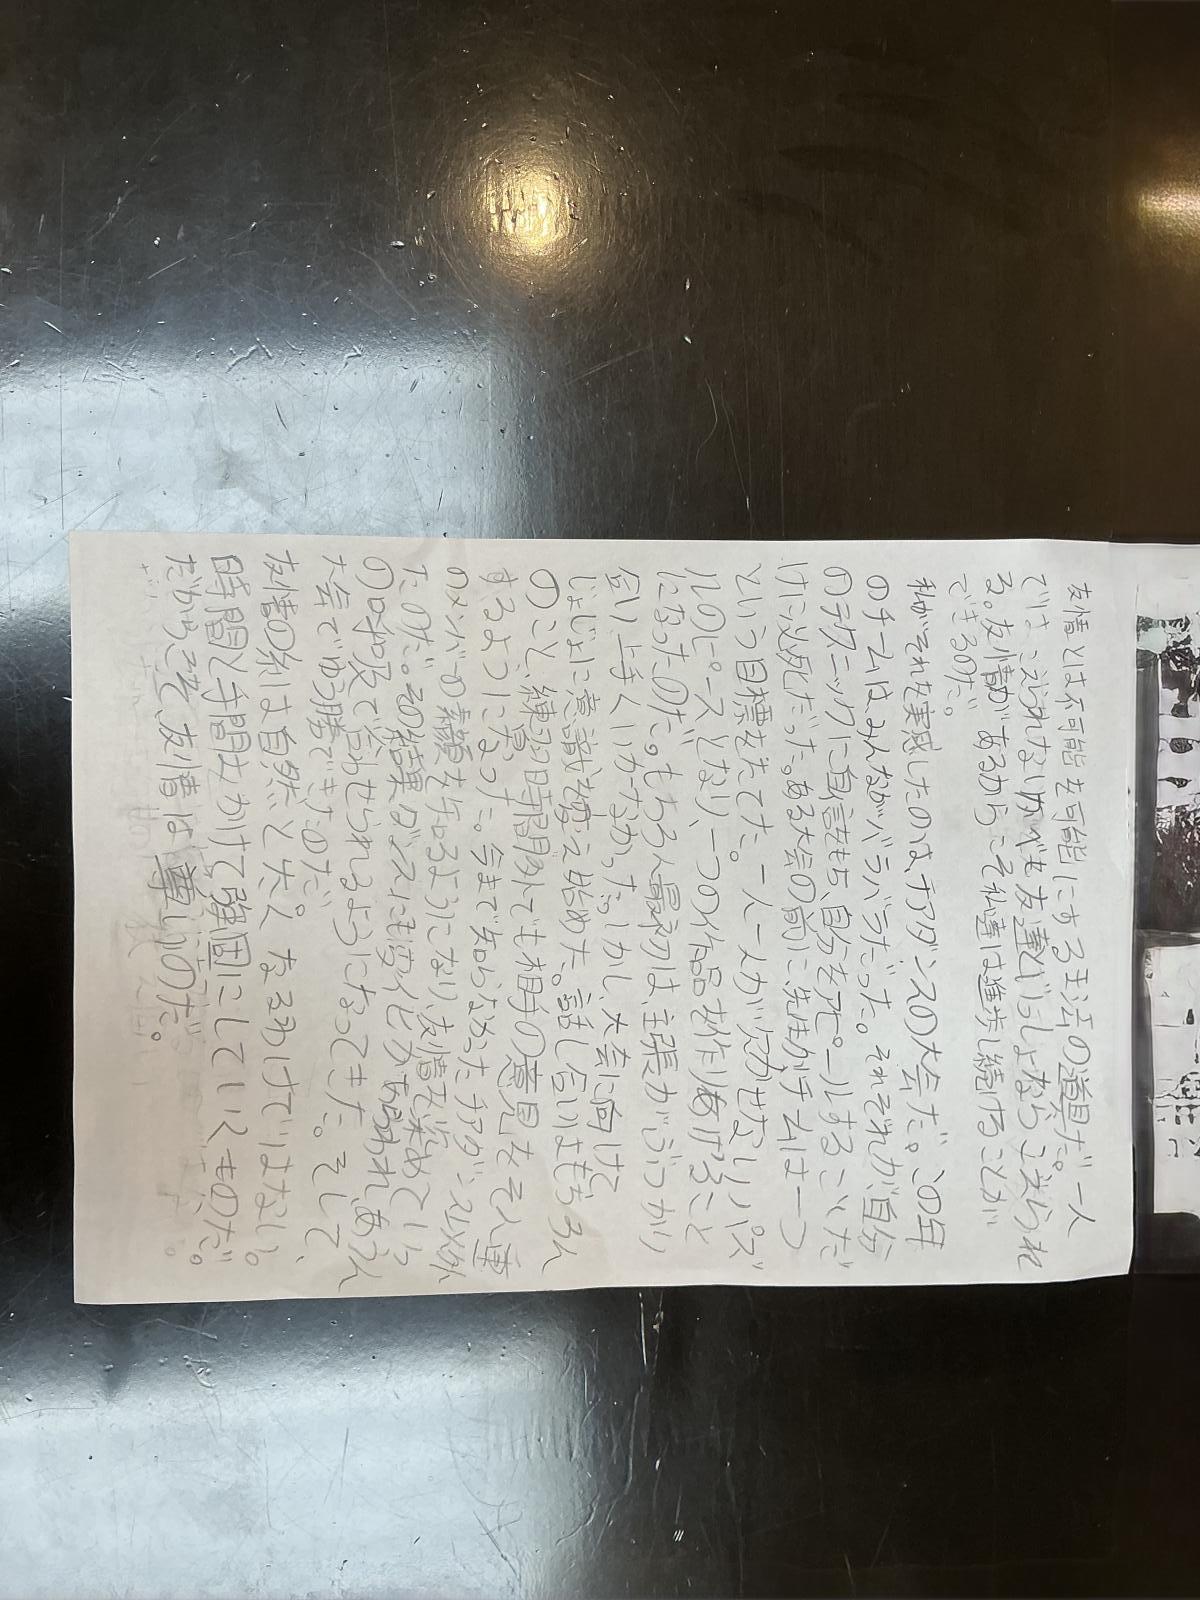 友情とは不可能を可能にする生活の道具だ。一人
でははこえられないかべも友達がいしょならこえられ
る。友情があるからこそ私達は進歩し続けることが
できるのだ。
私がそれを実感したのは、チアダンスの大会だ。この年
のチームはみんながバラバラだった。それぞれが自分
のテクニックに自信をもち、自分をアピールすることだ
けに必死だった。ある大会の前に先生がチームは一つ
という目標をたてた。一人一人が欠かせないパズ
ルのピースとなり、一つの作品を作りあげること
になったのだ。もちろん最初は主張がぶつかり
合い上手くいかなかった。しかし、大会に向けて
じょじょに意識が変え始めた。話し合いはもちろん
のこと、練習時間外でも相手の意見をそん重
するようになった。今まで知らなかったチアダンス以外
のメンバーの素顔を知るようになり、友情が深めてい
たのだ。その結果ダンスにも変化があらわれ、あうん
の呼吸で合わせられるようになってきた。そして、
大会でゆう勝できたのだ。
友情の糸は自然と太くなるわけではない。
時間と手間をかけて強固にしていくものだ。
だからこそ友情は尊いのだ。